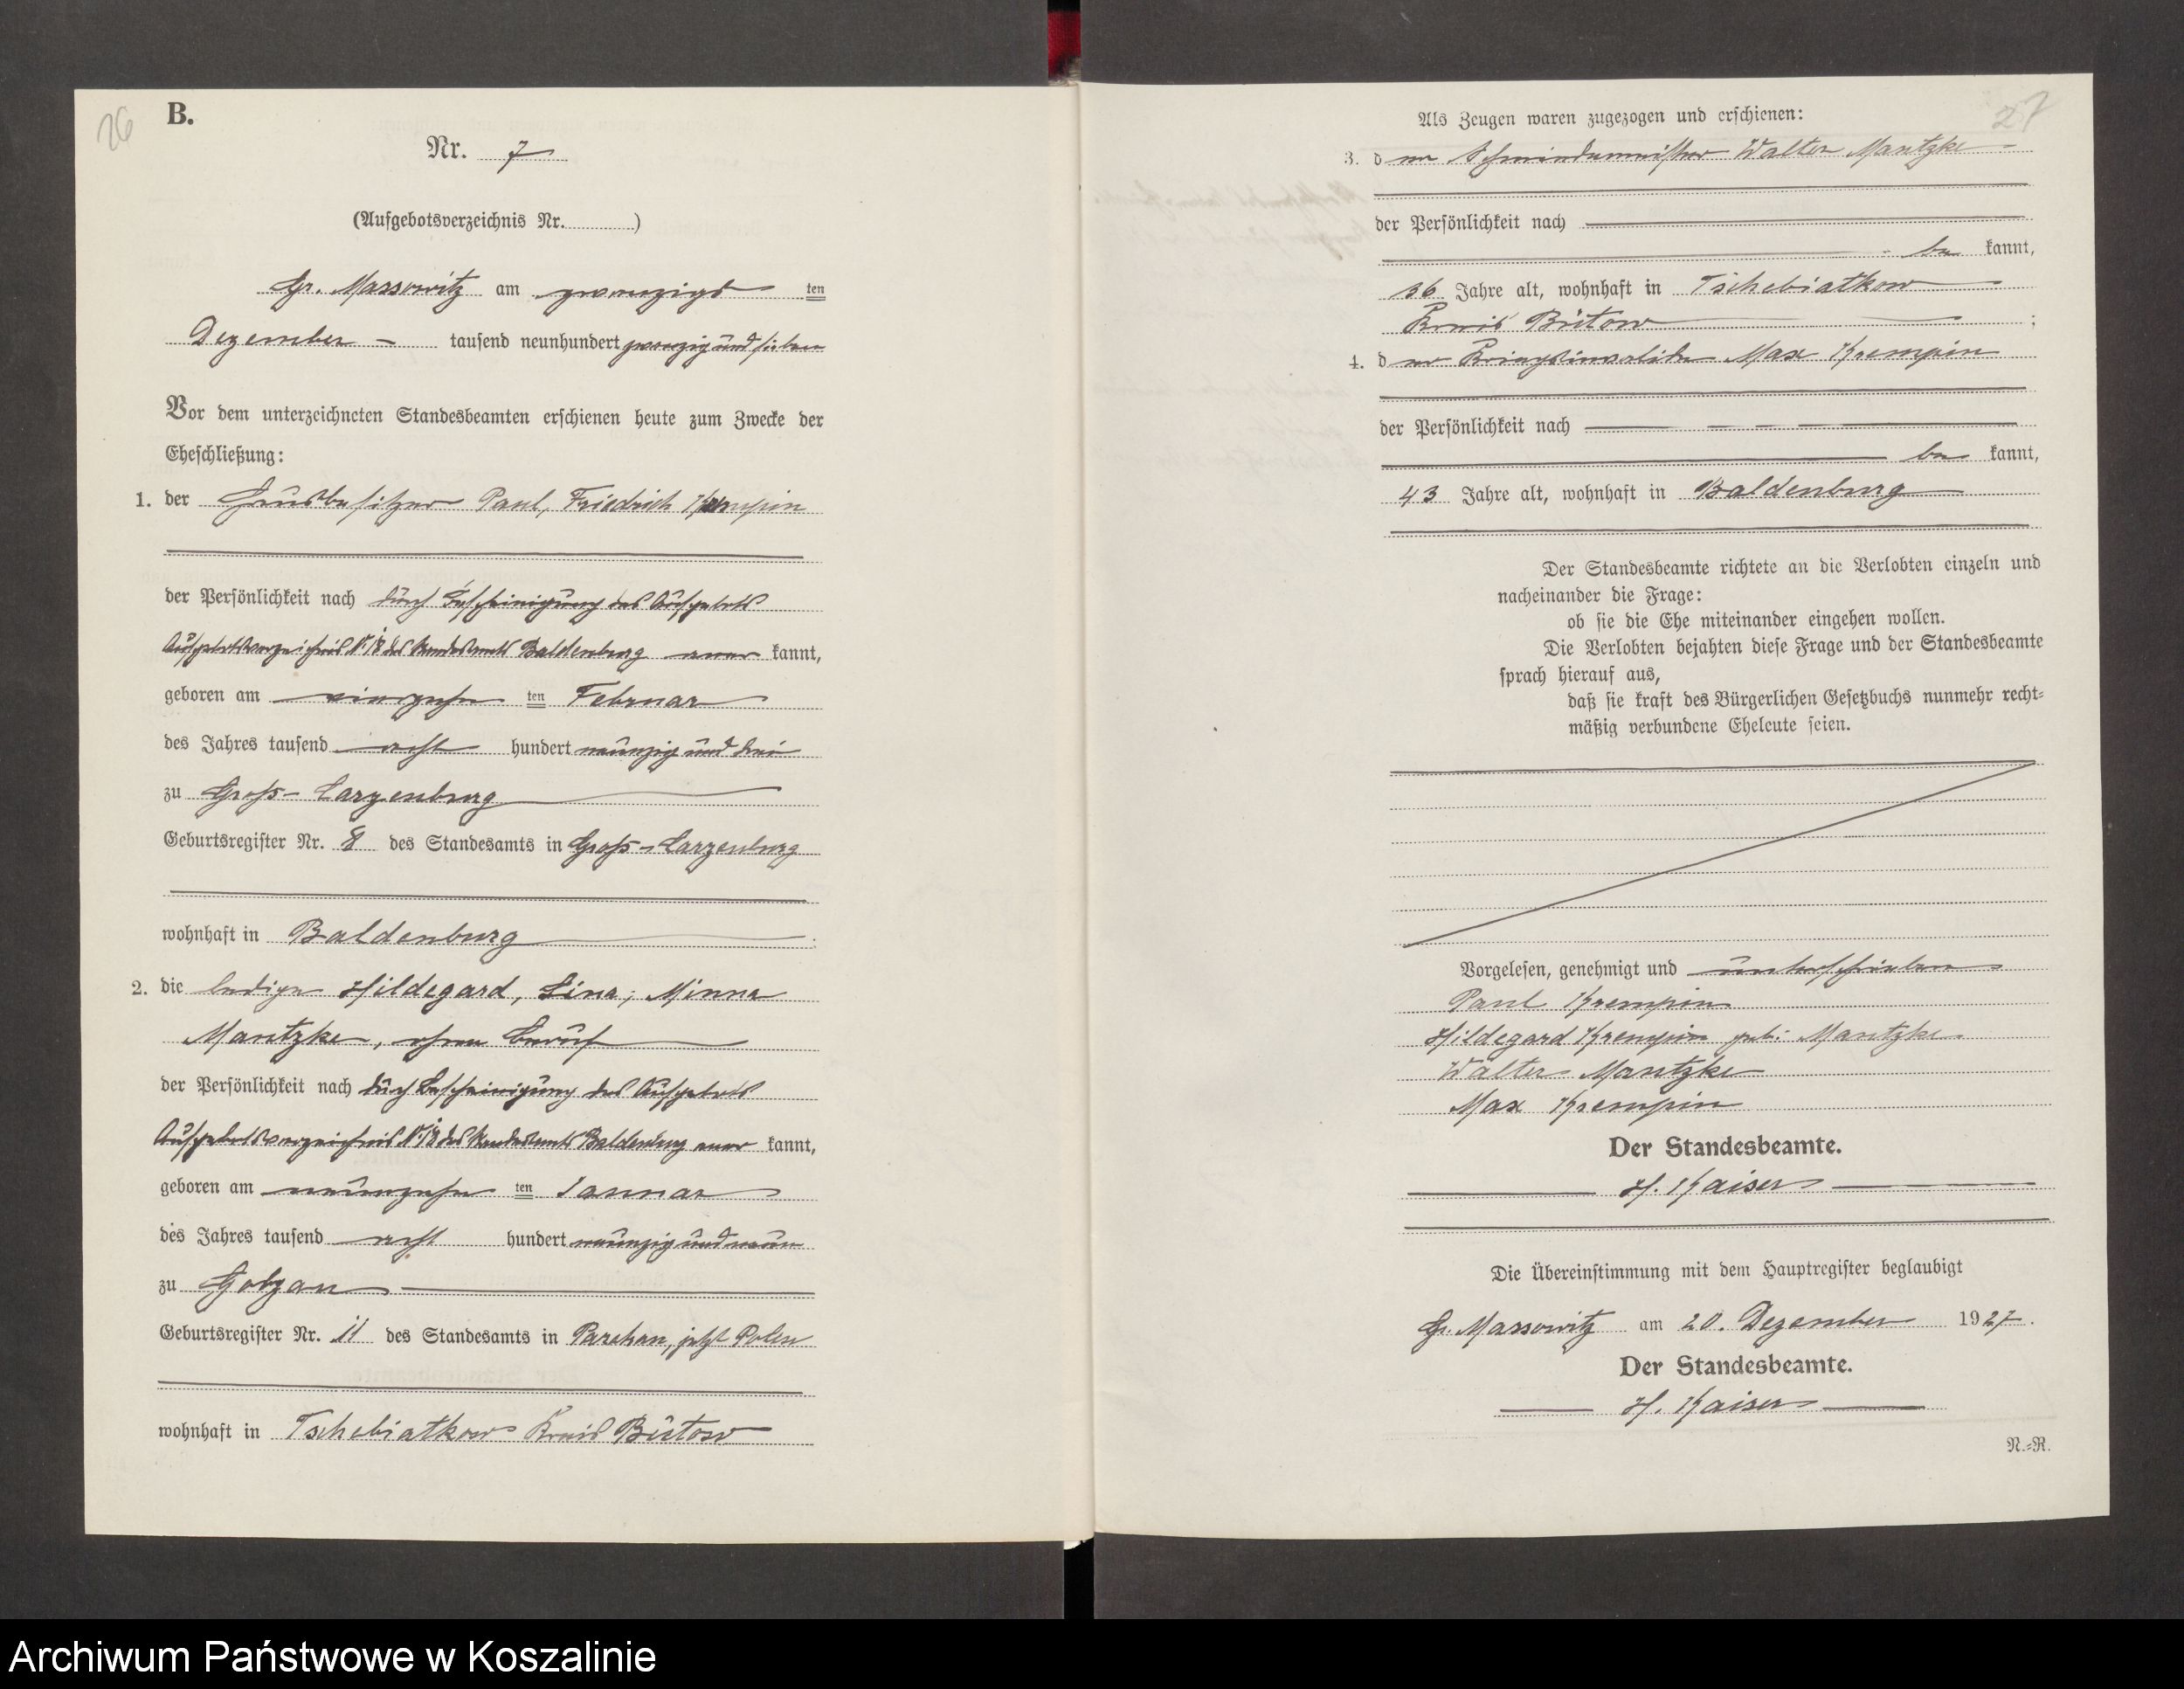 26
B.
Nr. 7
(Aufgebotsverzeichnis Nr. )
Gr. Massowitz am zwanzigs ten
Dezember tausend neunhundert zwanzig und sieben
Vor dem unterzeichneten Standesbeamten erschienen heute zum Zwecke der
Eheschließung:
1. der Hausbesitzer Paul, Friedrich Krempin
der Persönlichkeit nach durch Bescheinigung des Aufgebots
Aufgebotsverzeichnis Nr. des Standesamts Baldenburg aner kannt,
geboren am vierzehn ten Februar
des Jahres tausend acht hundert neunzig und drei
zu Gross-Carzenburg
Geburtsregister Nr. 8 des Standesamts in Gross-Carzenburg
wohnhaft in Baldenburg
2. die ledige Hildegard, Lina, Minna
Mantzke, ohne Beruf
der Persönlichkeit nach durch Bescheinigung des Aufgebots
Aufgebotsverzeichnis Nr. des Standesamts Baldenburg aner kannt,
geboren am neunzehn ten Januar
des Jahres tausend acht hundert neunzig und neun
zu Golzau
Geburtsregister Nr. 11 des Standesamts in Parchau, jetzt Polen
wohnhaft in Tschebiatkow Kreis Bütow
27
Als Zeugen waren zugezogen und erschienen:
3. d er Schmiedemeister Walter Mantzke
der Persönlichkeit nach
be kannt,
36 Jahre alt, wohnhaft in Tschebiatkow
Kreis Bütow ;
4. d er Kriegsinvalide Max Krempin
der Persönlichkeit nach
be kannt,
43 Jahre alt, wohnhaft in Baldenburg
Der Standesbeamte richtete an die Verlobten einzeln und
nacheinander die Frage:
ob sie die Ehe miteinander eingehen wollen.
Die Verlobten bejahten diese Frage und der Standesbeamte
sprach hierauf aus,
daß sie kraft des Bürgerlichen Gesetzbuchs nunmehr recht-
mäßig verbundene Eheleute seien.
Vorgelesen, genehmigt und unterschrieben
Paul Krempin
Hildegard Krempin geb. Mantzke
Walter Mantzke
Max Krempin
Der Standesbeamte.
H. Kaiser
Die Übereinstimmung mit dem Hauptregister beglaubigt
Gr. Massowitz am 20. Dezember 1927.
Der Standesbeamte.
H. Kaiser
N.-R.
Archiwum Państwowe w Koszalinie